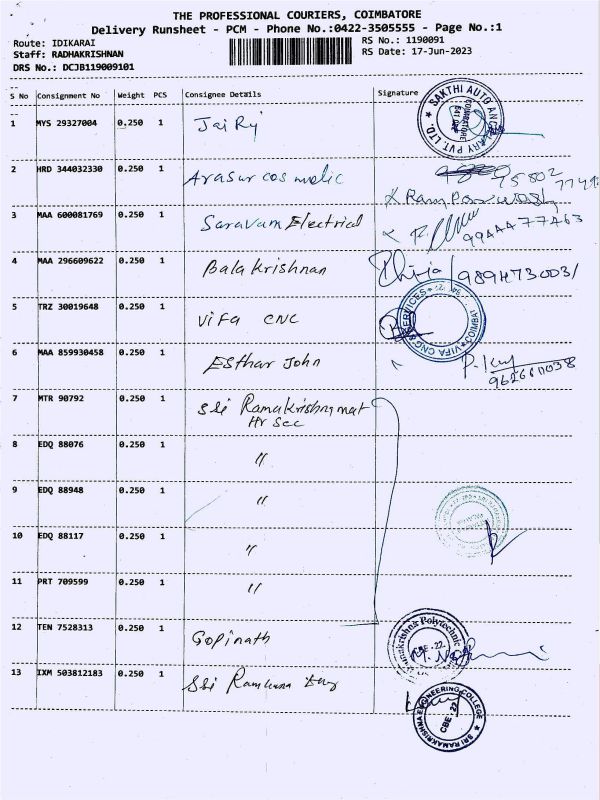 THE PROFESSIONAL COURIERS, COIMBATORE
Delivery Runsheet - PCM - Phone No.:0422-3505555 - Page No.:1
Route: IDIKARAI RS No.: 1190091
Staff: RADHAKRISHNAN RS Date: 17-Jun-2023
DRS No.: DCJB119009101
S No Consignment No Weight PCS Consignee Details Signature
1 MYS 29327004 0.250 1 Jai Raj
SAKTHI AUTO PVT. LTD. COIMBATORE
2 HRD 344032330 0.250 1 Arasur cosmatic
3 MAA 600081769 0.250 1 Saravam Electrical 9944477463
4 MAA 296609622 0.250 1 Bala Krishnan
5 TRZ 30019648 0.250 1 ViFa CNC
VIFA CNC SERVICES
6 MAA 859930458 0.250 1 Esthar John
7 MTR 90792 0.250 1 Sri Ramakrishna mat
Hr Sec
8 EDQ 88076 0.250 1 "
9 EDQ 88948 0.250 1 "
10 EDQ 88117 0.250 1 "
11 PRT 709599 0.250 1 "
12 TEN 7528313 0.250 1 Gopinath
Ramakrishna Polytechnic CBE - 22
13 IXM 503812183 0.250 1 Sri
SRI RAMAKRISHNA ENGINEERING COLLEGE CBE 22